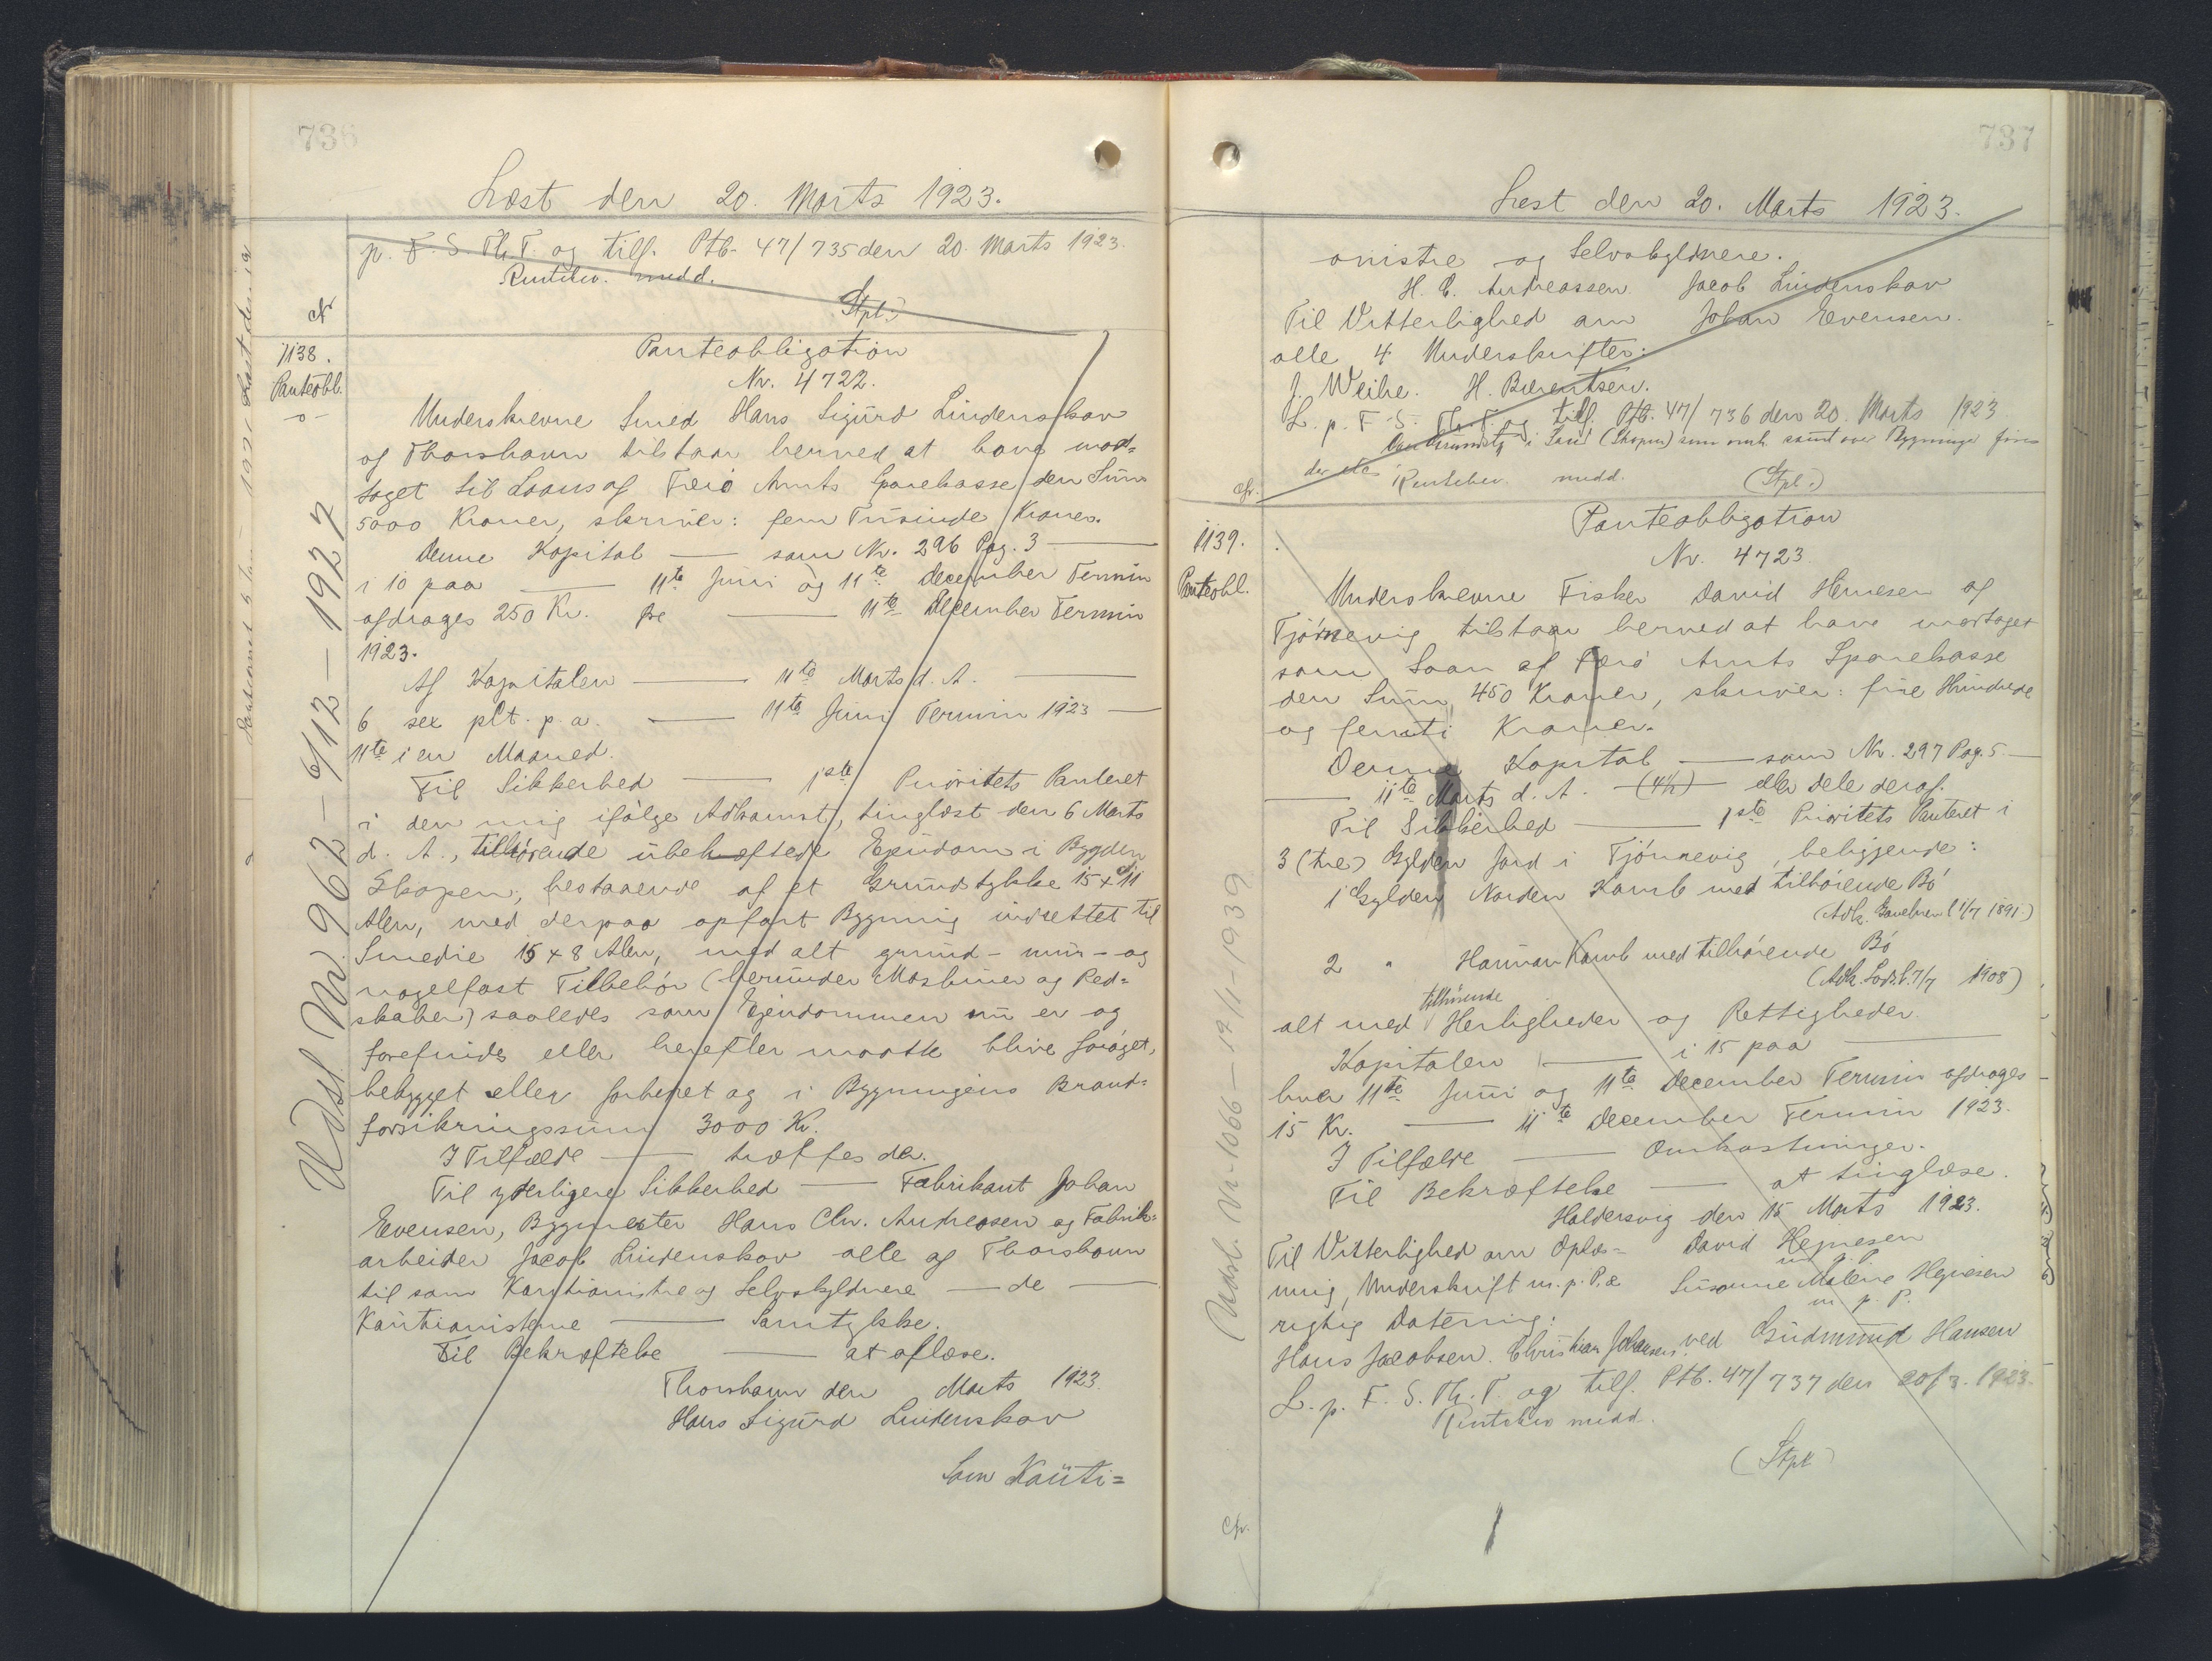 736
Læst den 20. Marts 1923.
p. F. S. Th. T. og tilf. Ptb. 47/735 den 20. Marts 1923.
Rentebev. medd.
(Stpl.)
cfr
1138.
Panteobl.
-o-
Panteobligation
Nr. 4722.
Underskrevne Smed Hans Sigurd Lindenskov
af Thorshavn tilstaar herved at have mod=
taget til Laans af Færø Amts Sparekasse den Sum
5000 Kroner, skriver: fem Tusinde Kroner.
Denne Kapital — som Nr. 296 Pag. 3 —
i 10 paa — 11te Juni og 11te December Termin
afdrages 250 Kr. — 11te December Termin
1923.
Af Kapitalen — 11te Marts d. A. —
6 sex pCt. p. a. — 11te Juni Termin 1923 —
11te i en Maaned.
Til Sikkerhed — 1ste Prioritets Panteret
i den mig ifølge Adkomst, tinglæst den 6 Marts
d. A., tilhørende ubehæftede Ejendom i Bygden
Skopen, bestaaende af et Grundstykke 15 x 11
Alen, med derpaa opført Bygning indrettet til
Smedie 15 x 8 Alen, med alt grund- mur- og
nagelfast Tilbehør (herunder Maskiner og Red=
skaber) saaledes som Ejendommen nu er og
forefindes eller herefter maatte blive forøget,
bebygget eller forbedret og i Bygningens Brand=
forsikringssum 3000 Kr.
I Tilfælde — træffes der.
Til yderligere Sikkerhed — Fabrikant Johan
Evensen, Bygmester Hans Chr. Andreasen og Fabrik=
arbeider Jacob Lindenskov alle af Thorshavn
til som Kautionister og Selvskyldnere — de —
Kautionisterne — Samtykke.
Til Bekræftelse — at aflæse.
Thorshavn den Marts 1923.
Hans Sigurd Lindenskov
Som Kauti=
Udsl. Nr. 962 - 6/12 - 1927
737
Læst den 20. Marts 1923.
onister og Selvskyldnere.
H. C. Andreassen Jacob Lindenskov
Til Vitterlighed om Johan Evensen.
alle 4 Underskrifter:
J. Weihe. H. Berentsen.
L. p. F. S. Th. T. og tilf. Ptb. 47/736 den 20. Marts 1923
i Sand (Skopen) som samt over Bygninge
Rentebev. medd. (Stpl.)
cfr.
1139.
Panteobl.
Panteobligation
Nr. 4723
Underskrevne Fisker David Hejnesen af
Tjørnevig tilstaar herved at have modtaget
som Laan af Færø Amts Sparekasse
den Sum 450 Kroner, skriver: fire Hundrede
og femti Kroner.
Denne Kapital — som Nr. 297 Pag. 5 —
— 11te Marts d. A. — (4½) — eller Dele deraf.
Til Sikkerhed — 1ste Prioritets Panteret i
3 (tre) Gylden Jord i Tjørnevig, beliggende:
1 Gylden Norden Kamb med tilhørende Bø
(Adk. Gavebrev 1/7 1891)
2 " Hannan Kamb med tilhørende Bø
(Adk. 7/7 1908)
tilhørende
alt med Herligheder og Rettigheder.
Kapitalen — i 15 paa —
hver 11te Juni og 11te December Termin afdrages —
15 Kr. — 11te December Termin 1923.
I Tilfælde — Omkostninger.
Til Bekræftelse — at tinglæse.
Haldersvig den 15 Marts 1923.
Til Vitterlighed om Oplæs= David Hejnesen
ning, Underskrift m. p. P. & Susanne Malene Hejnesen
m. p. P.
rigtig Datering:
Hans Jacobsen. Christian Johannes ved Gudmund Hansen
L. p. F. S. Th. T. og tilf. Ptb. 47/737 den 20/3. 1923.
Rentebev medd.
(Stpl)
cfr.
Udsl. Nr 1066 - 19/1 - 1939